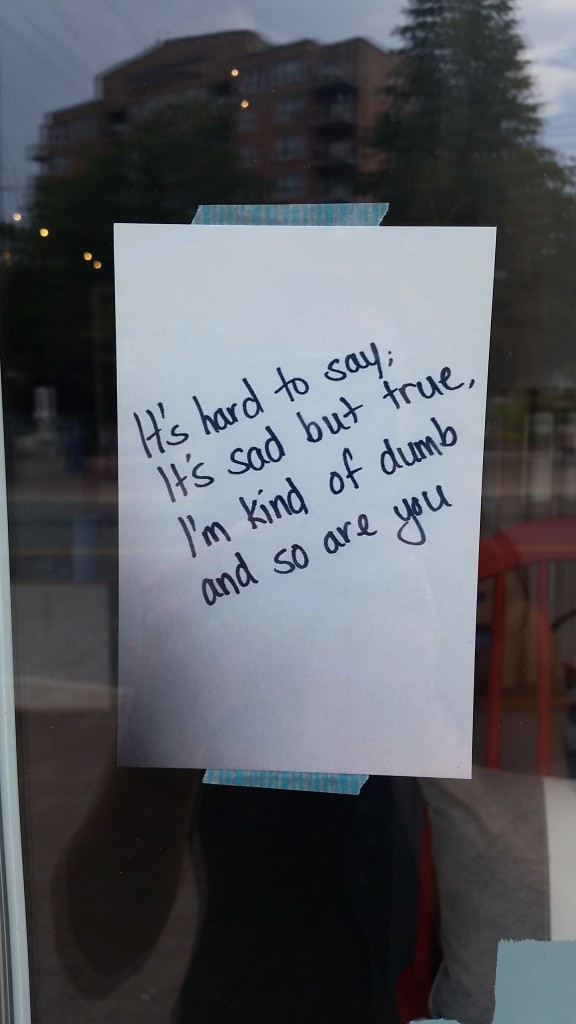 It's hard to say;
It's sad but true,
I'm kind of dumb
and so are you